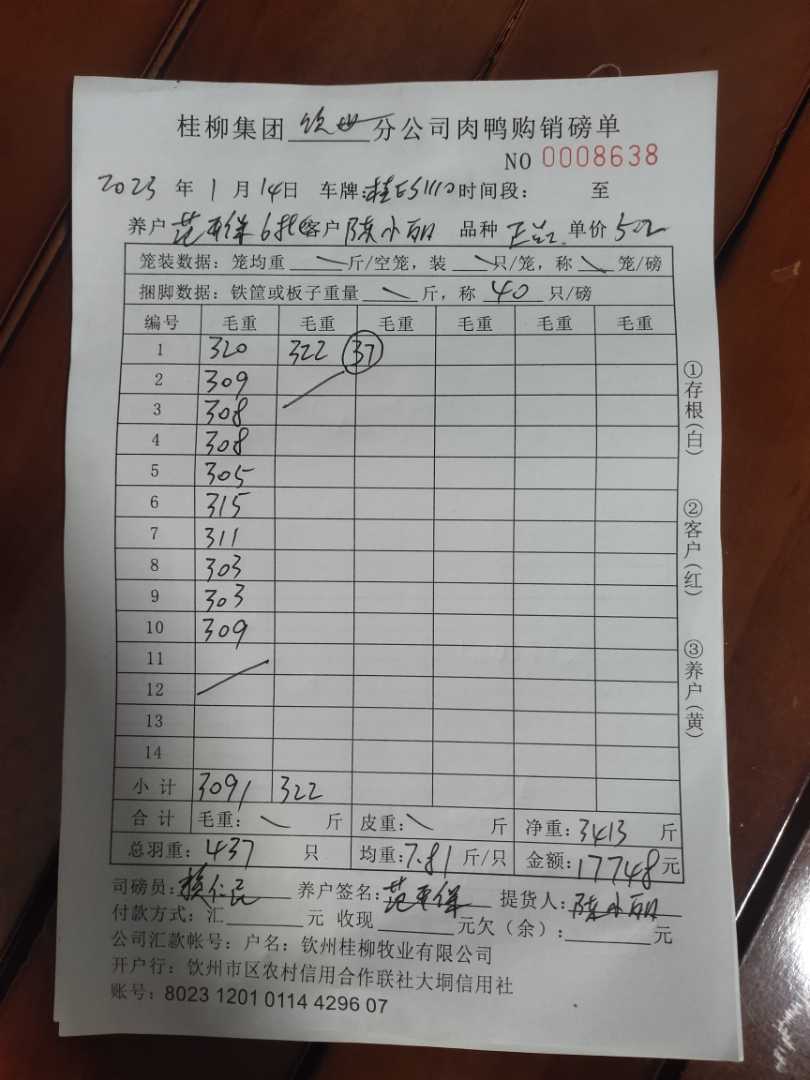 桂柳集团 钦州 分公司肉鸭购销磅单
NO 0008638
2023 年 1 月 14 日 车牌: 时间段: 至
养户 范 6批 客户 陈小丽 品种 单价 5.2
笼装数据: 笼均重 \ 斤/空笼, 装 \ 只/笼, 称 \ 笼/磅
捆脚数据: 铁筐或板子重量 \ 斤, 称 40 只/磅
编号 毛重 毛重 毛重 毛重 毛重 毛重
1 320 322 37
2 309
3 308
4 308
5 305
6 315
7 311
8 303
9 303
10 309
11
12
13
14
小计 3091 322
合计 毛重: \ 斤 皮重: \ 斤 净重: 3413 斤
总羽重: 437 只 均重: 7.81 斤/只 金额: 17748 元
司磅员: 养户签名: 范 提货人: 陈小丽
付款方式: 汇 元 收现 元欠(余): 元
公司汇款帐号: 户名: 钦州桂柳牧业有限公司
开户行: 钦州市区农村信用合作联社大垌信用社
账号: 8023 1201 0114 4296 07
①存根(白)
②客户(红)
③养户(黄)